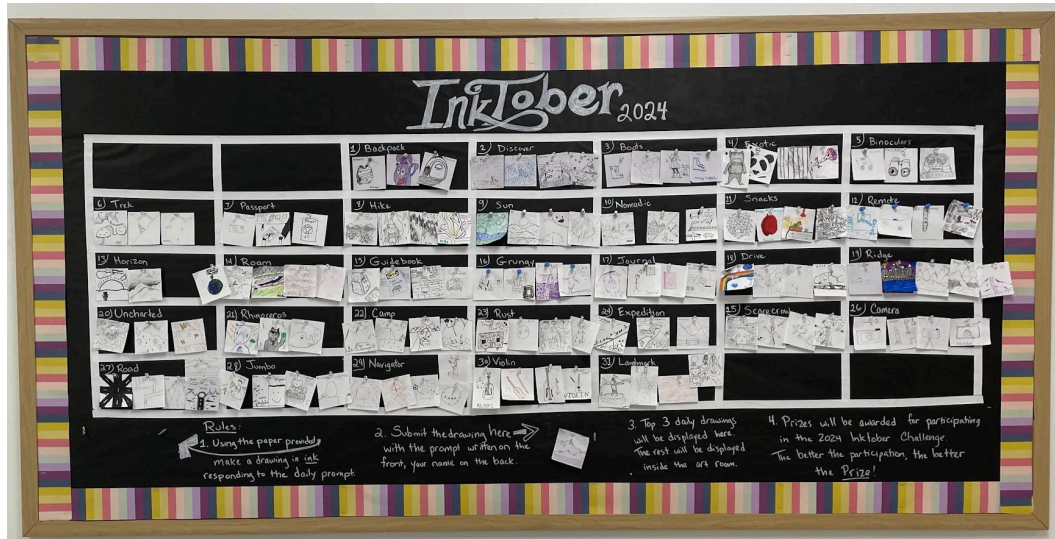 InkTober 2024
1) Backpack
2) Discover
3) Boots
4) Exotic
5) Binoculars
6) Trek
7) Passport
8) Hike
9) Sun
10) Nomadic
11) Snacks
12) Remote
13) Horizon
14) Roam
15) Guidebook
16) Grungy
17) Journal
18) Drive
19) Ridge
20) Uncharted
21) Rhinoceros
22) Camp
23) Rust
24) Expedition
25) Scarecrow
26) Camera
27) Road
28) Jumbo
29) Navigator
30) Violin
31) Landmark
VIOLIN
Rules:
1. Using the paper provided,
make a drawing in ink
responding to the daily prompt.
2. Submit the drawing here
with the prompt written on the
front, your name on the back.
3. Top 3 daily drawings
will be displayed here.
The rest will be displayed
inside the art room.
4. Prizes will be awarded for participating
in the 2024 Inktober Challenge.
The better the participation, the better
the Prize!